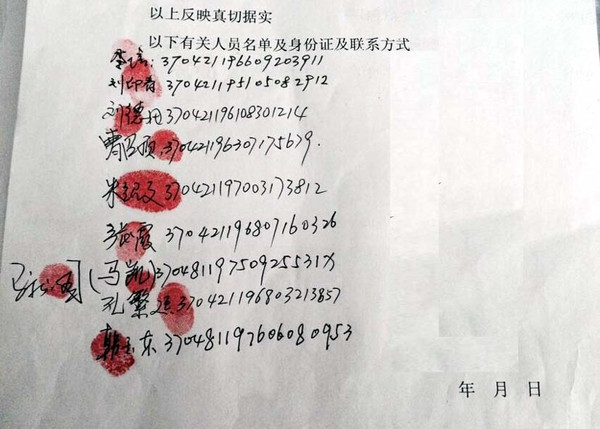 以上反映真切据实
以下有关人员名单及身份证及联系方式
李 : 370421196609203911
刘印春 370421195105082912
刘德 370421196108301214
曹 顶 370421196307175679.
朱 文 370421197003173812
张 霞 370421196807160326
(马凯) 37048119750925531X
孔繁 370421196803213857
韩 东 370481197606080953
年 月 日